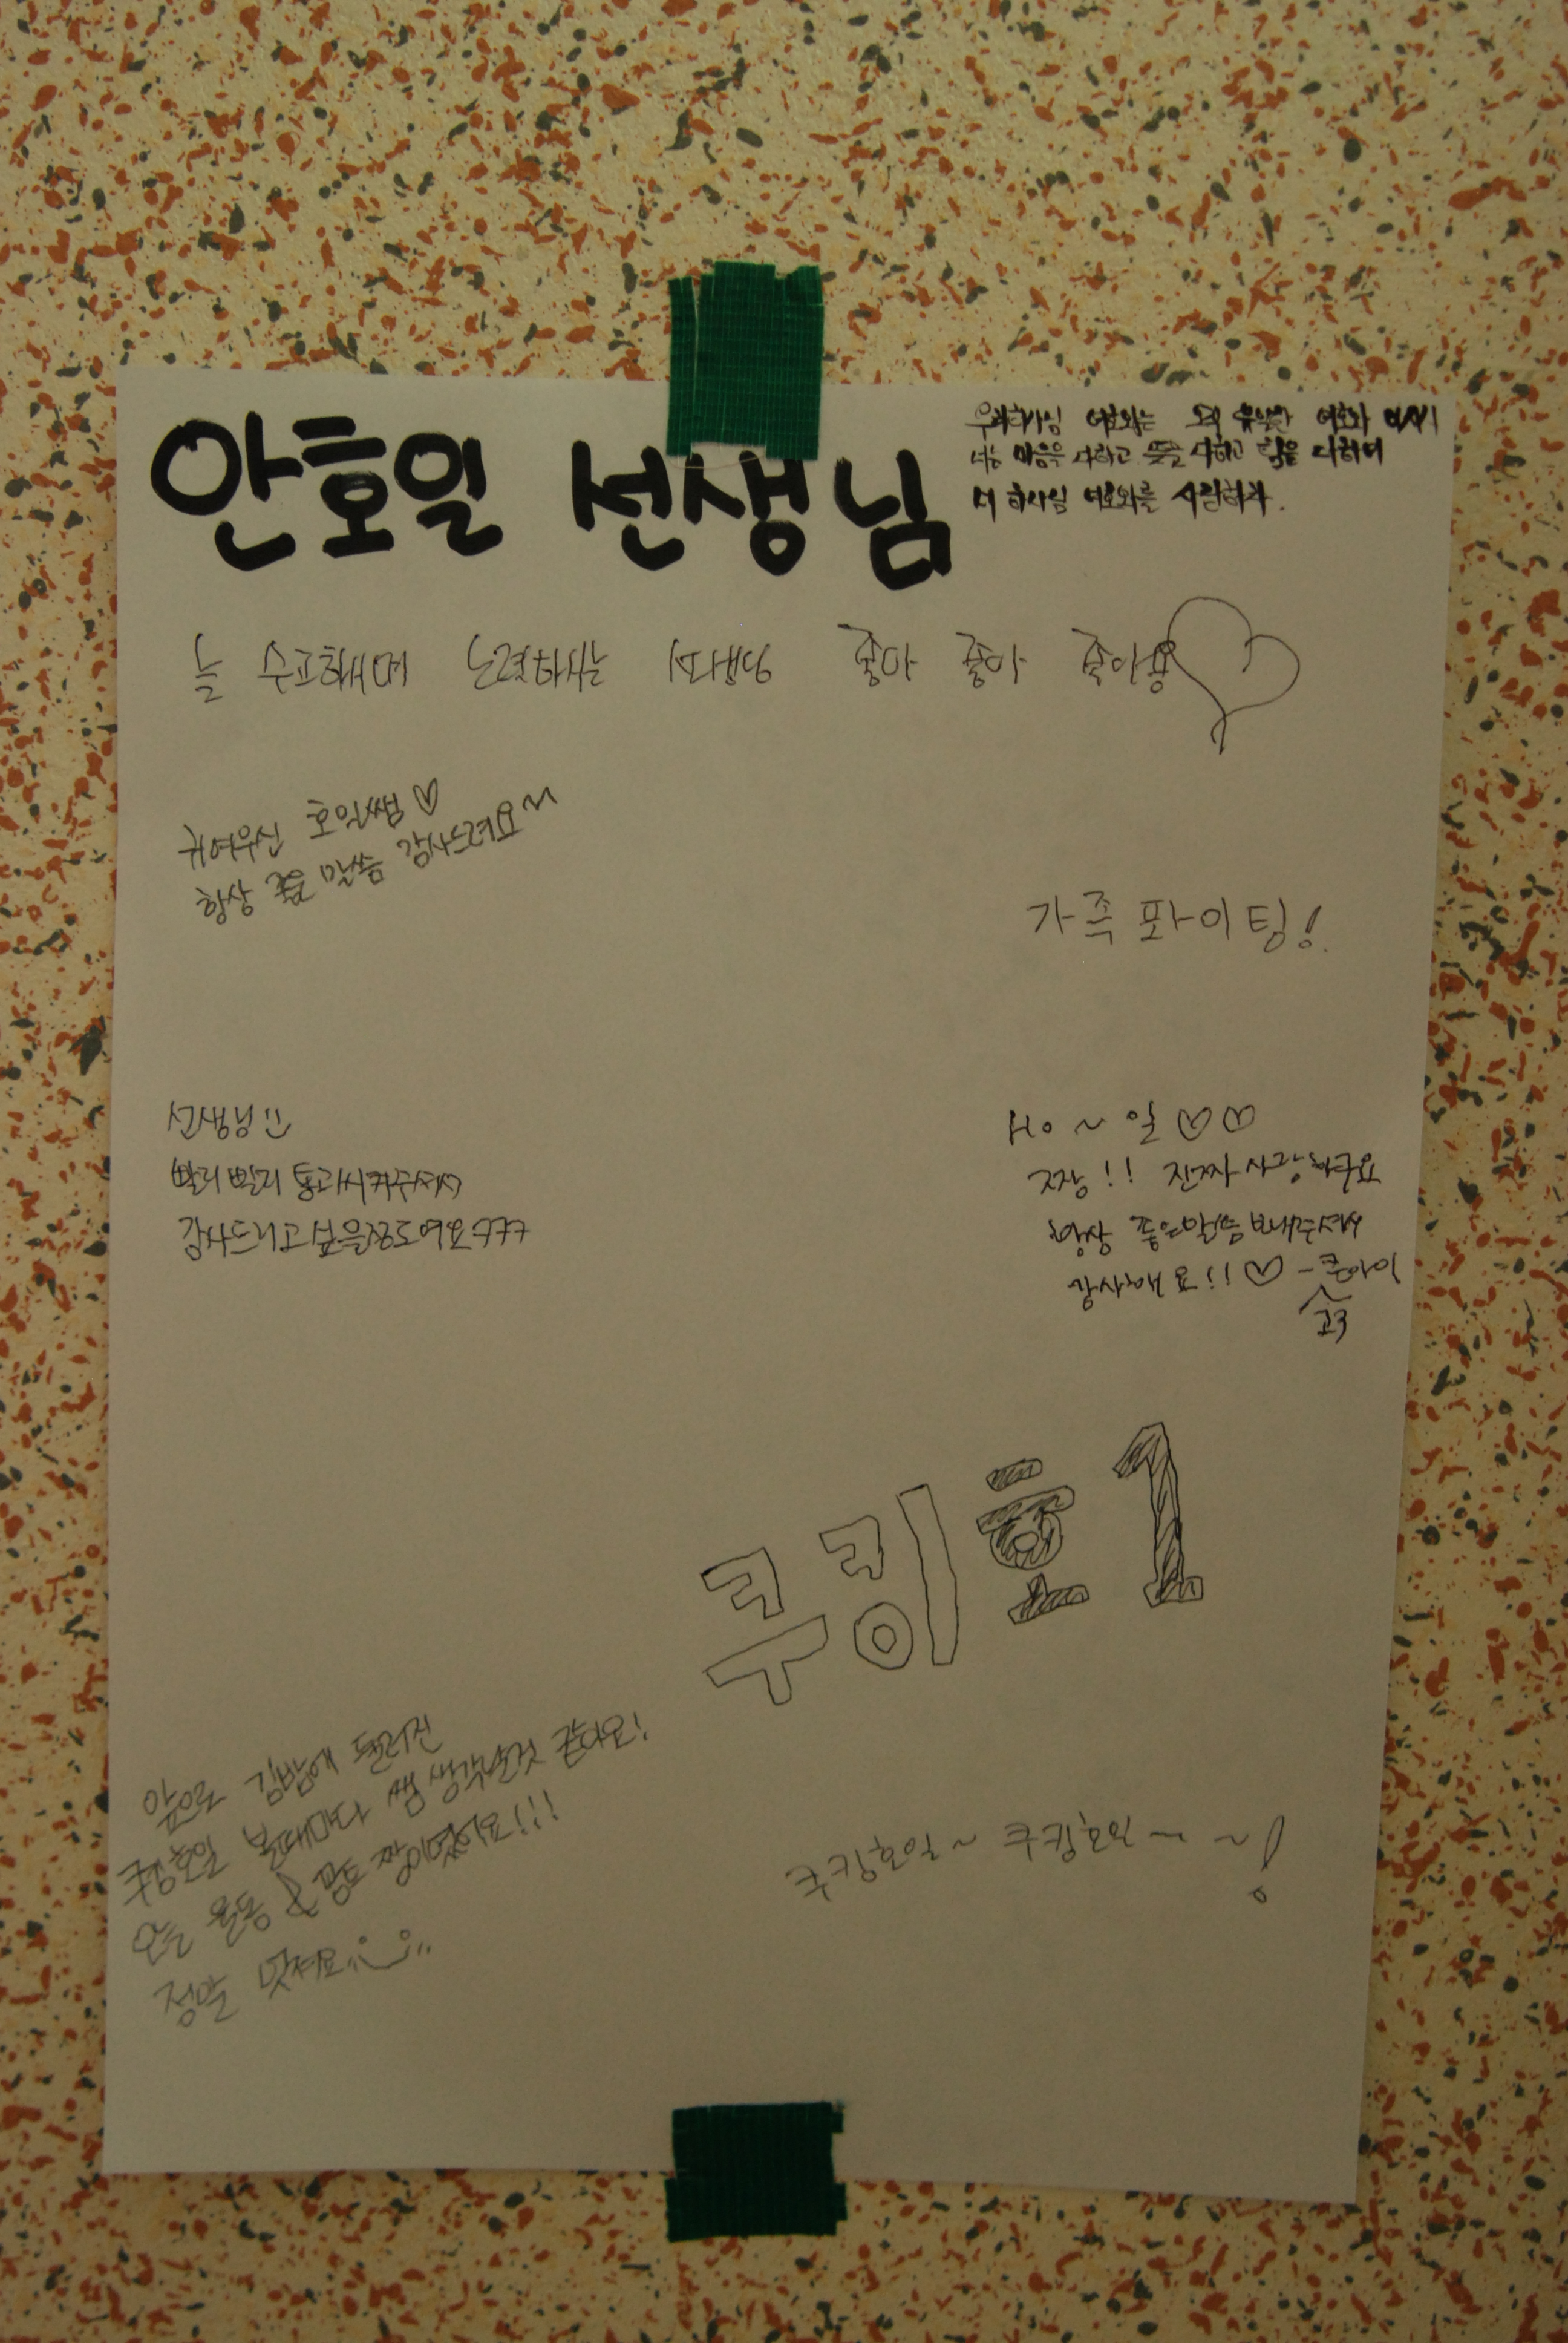 안호일 선생님
우리 하나님 여호와는 오직 유일한 여호와 이시니
너는 마음을 다하고 뜻을 다하고 힘을 다하여
네 하나님 여호와를 사랑하라.
늘 수고하시며 노력하시는 선생님 좋아 좋아 좋아용
귀여우신 호일쌤♡
항상 좋은 말씀 감사드려요~~
가족 파이팅!
선생님
빨리빨리 통과시켜주셔서
감사드리고 싶을정도예요ㅋㅋㅋ
Ho~일♡♡
짱!! 진짜 사랑하구요
항상 좋은말씀 보내주셔서
감사해요!!♡ -
고3
쿠킹호1
앞으로 김밥에 들러진
쿠킹호일 볼때마다 쌤 생각날것 같아요!
오늘 율동 & 짱이었어요!!!
정말 멋져요
쿠킹호일~ 쿠킹호일~~~!